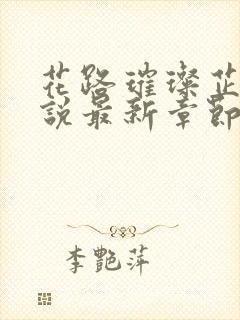 花路璀璨芷
說最新章節
李艷萍